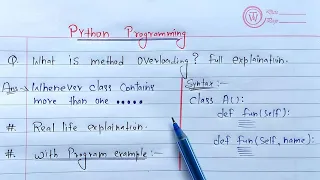 Python Programming
W
Q. What is method overloading? full explaination.
Ans→ Whenever class contains
more than one ......
#. Real life explaination.
#. With Program example:-
Syntax:-
class A():
def fun(self):
def fun(self, name):